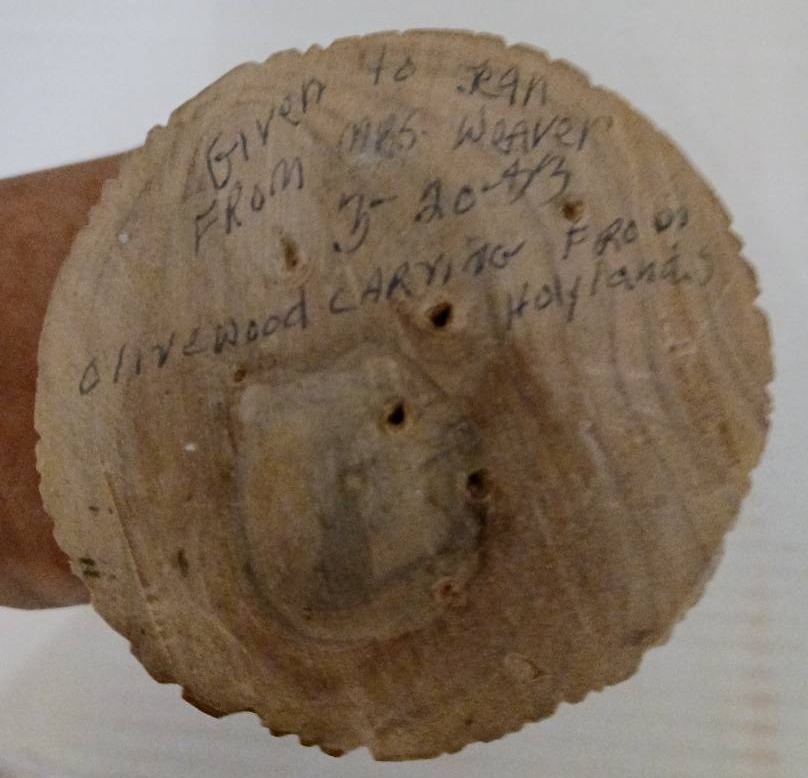 Given to Jean
FROM MRS. Weaver
3-20-43
Olivewood CARVING FROM
Holylands